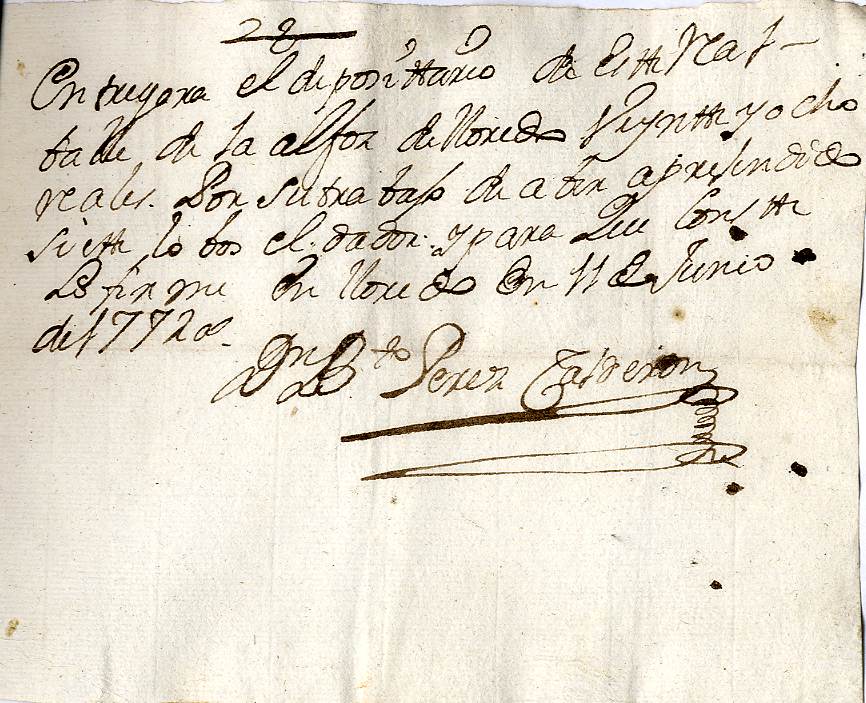 28
Entregara el deposittario de este Real
balle de la alfoz de lloredo Veyntte y ocho
reales. Por su trabajo de aber apresendido
siette lobos el dador. y para que Constte
lo firme en lloredo en 11 de Junio
de 1772
Dn Perez Calderon